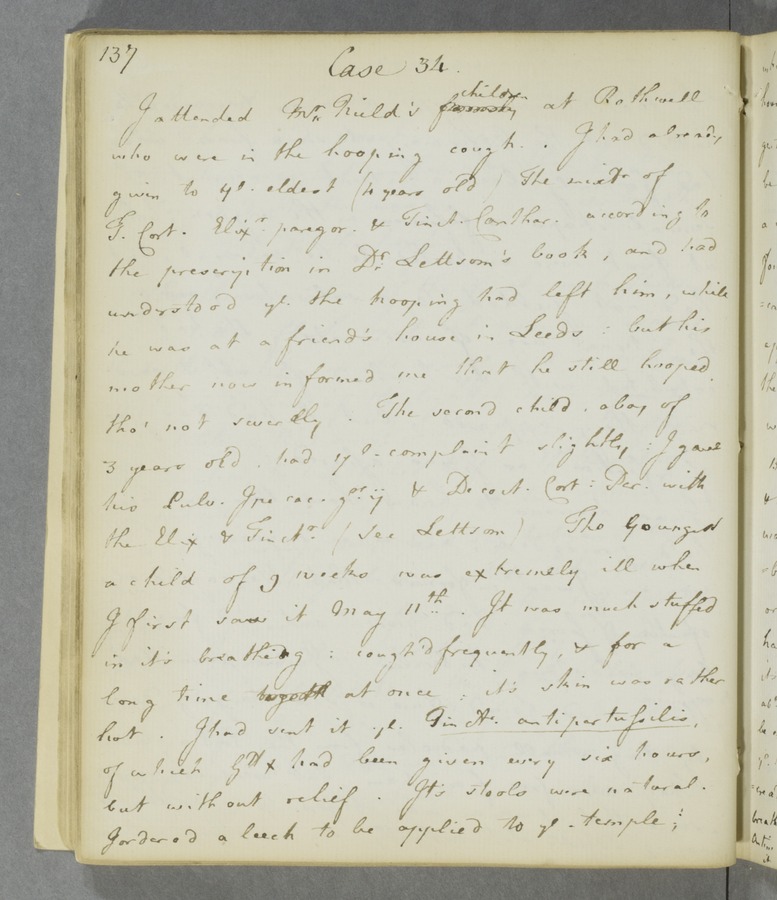 137
Case 34.
children
I attended Mrs Neild's family at Rothwell
who were in the hooping cough. I had already
given to ye. eldest (4 years old) The mixtr of
T. Cort. Elixr. paregor. & Tinct. Canthar. according to
the prescription in Dr. Lettsom's book, and had
understood yt. the hooping had left him, while
he was at a friend's house in Leeds : but his
mother now informed me that he still hooped
tho' not severely. The second child. a boy of
3 years old. had ye. complaint slightly : I gave
his Pulv. Ipecac. grs ij & Decoct. Cort : Per. with
the Elix & Tinctr. (see Lettsom) The Youngest
a child of 9 weeks was extremely ill when
I first saw it May 11th. It was much stuffed
in it's breathing : cough'd frequently, & for a
long time at once ; it's skin was rather
hot. I had sent it ye. Tinctr. antipertussilis,
of which gtt x had been given every six hours,
but without relief. It's stools were natural.
I ordered a leech to be applied to ye. temple ;